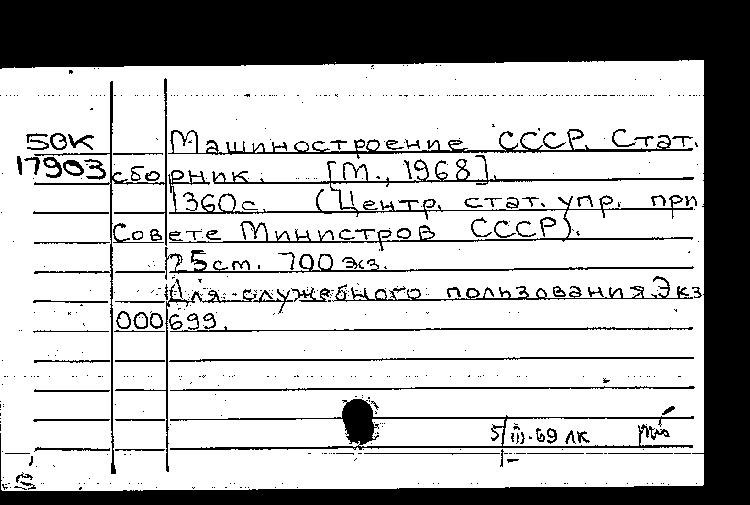 50К Машиностроение СССР. Стат.
17903 сборник. [М., 1968].
1360с. (Центр. стат. упр. при
Совете Министров СССР).
25 см. 700 экз.
Для служебного пользования. Экз
000699.
5/III-69 ЛК